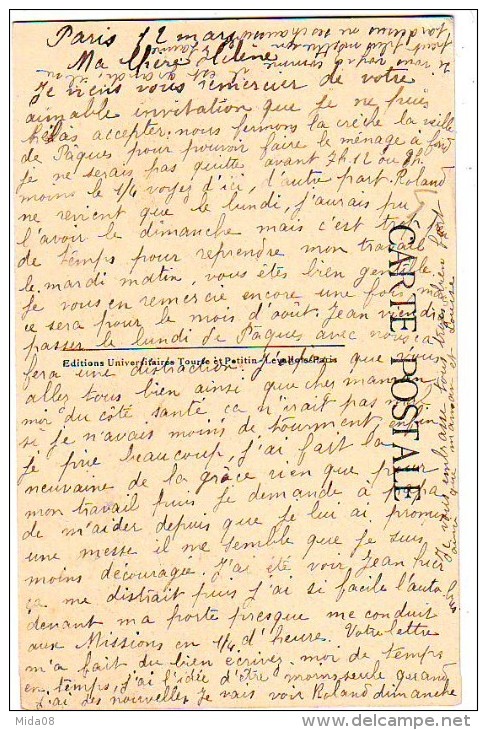 Paris 12 mars
Ma Chère Hélène
Je viens vous remercier de votre
aimable invitation que je ne puis
hélas accepter, nous fermons la crèche la veille
de Pâques pour pouvoir faire le ménage à fond
je ne serais pas quitte avant 7h 1/2 ou 8h
moins le 1/4 voyez d'ici, d'autre part Roland
ne revient que le lundi, j'aurais pu
l'avoir le dimanche mais c'est trop
de temps pour reprendre mon travail
le mardi matin, vous êtes bien gentille
je vous en remercie encore une fois, mais
ce sera pour le mois d'août. Jean viendra
passer le lundi de Pâques avec nous ça
Editions Universitaires Tourte et Petitin-Levallois-Paris
fera une distraction que vous
allez tous bien ainsi que chez maman
moi du côté santé ça n'irait pas mal
si je n'avais moins de tourment, enfin
je prie beaucoup, j'ai fait la
neuvaine de la grâce rien que pour
mon travail puis je demande à papa
de m'aider depuis que je lui ai promis
une messe il me semble que je suis
moins découragée. J'ai été voir Jean hier
ça me distrait puis j'ai si facile l'autobus
devant ma porte presque me conduit
aux Missions en 1/4 d'heure. Votre lettre
m'a fait du bien écrivez-moi de temps
en temps, j'ai l'idée d'être moins seule quand
j'ai des nouvelles, je vais voir Roland dimanche
CARTE POSTALE
Je vous embrasse tous trois bien fort
ainsi que maman et Louise
Mida08
© delcampe.net